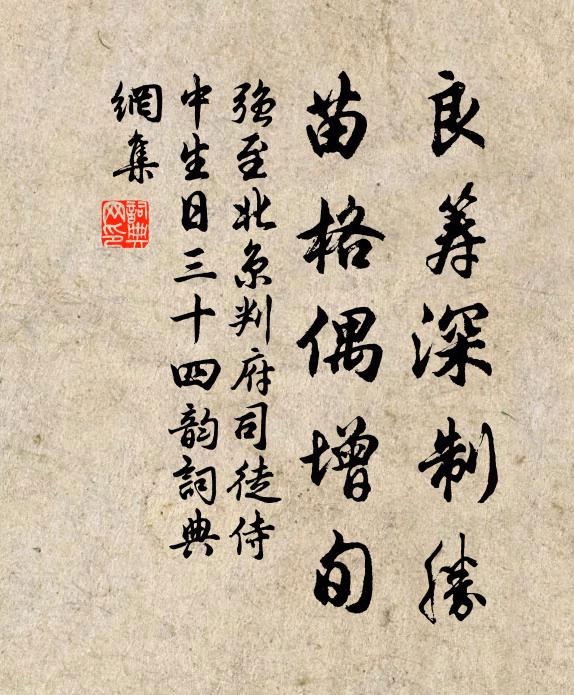 良筹深制勝
苗格偶增旬
強至北京判府司徒侍
中生日三十四韵詞典
網集
詞典
网印